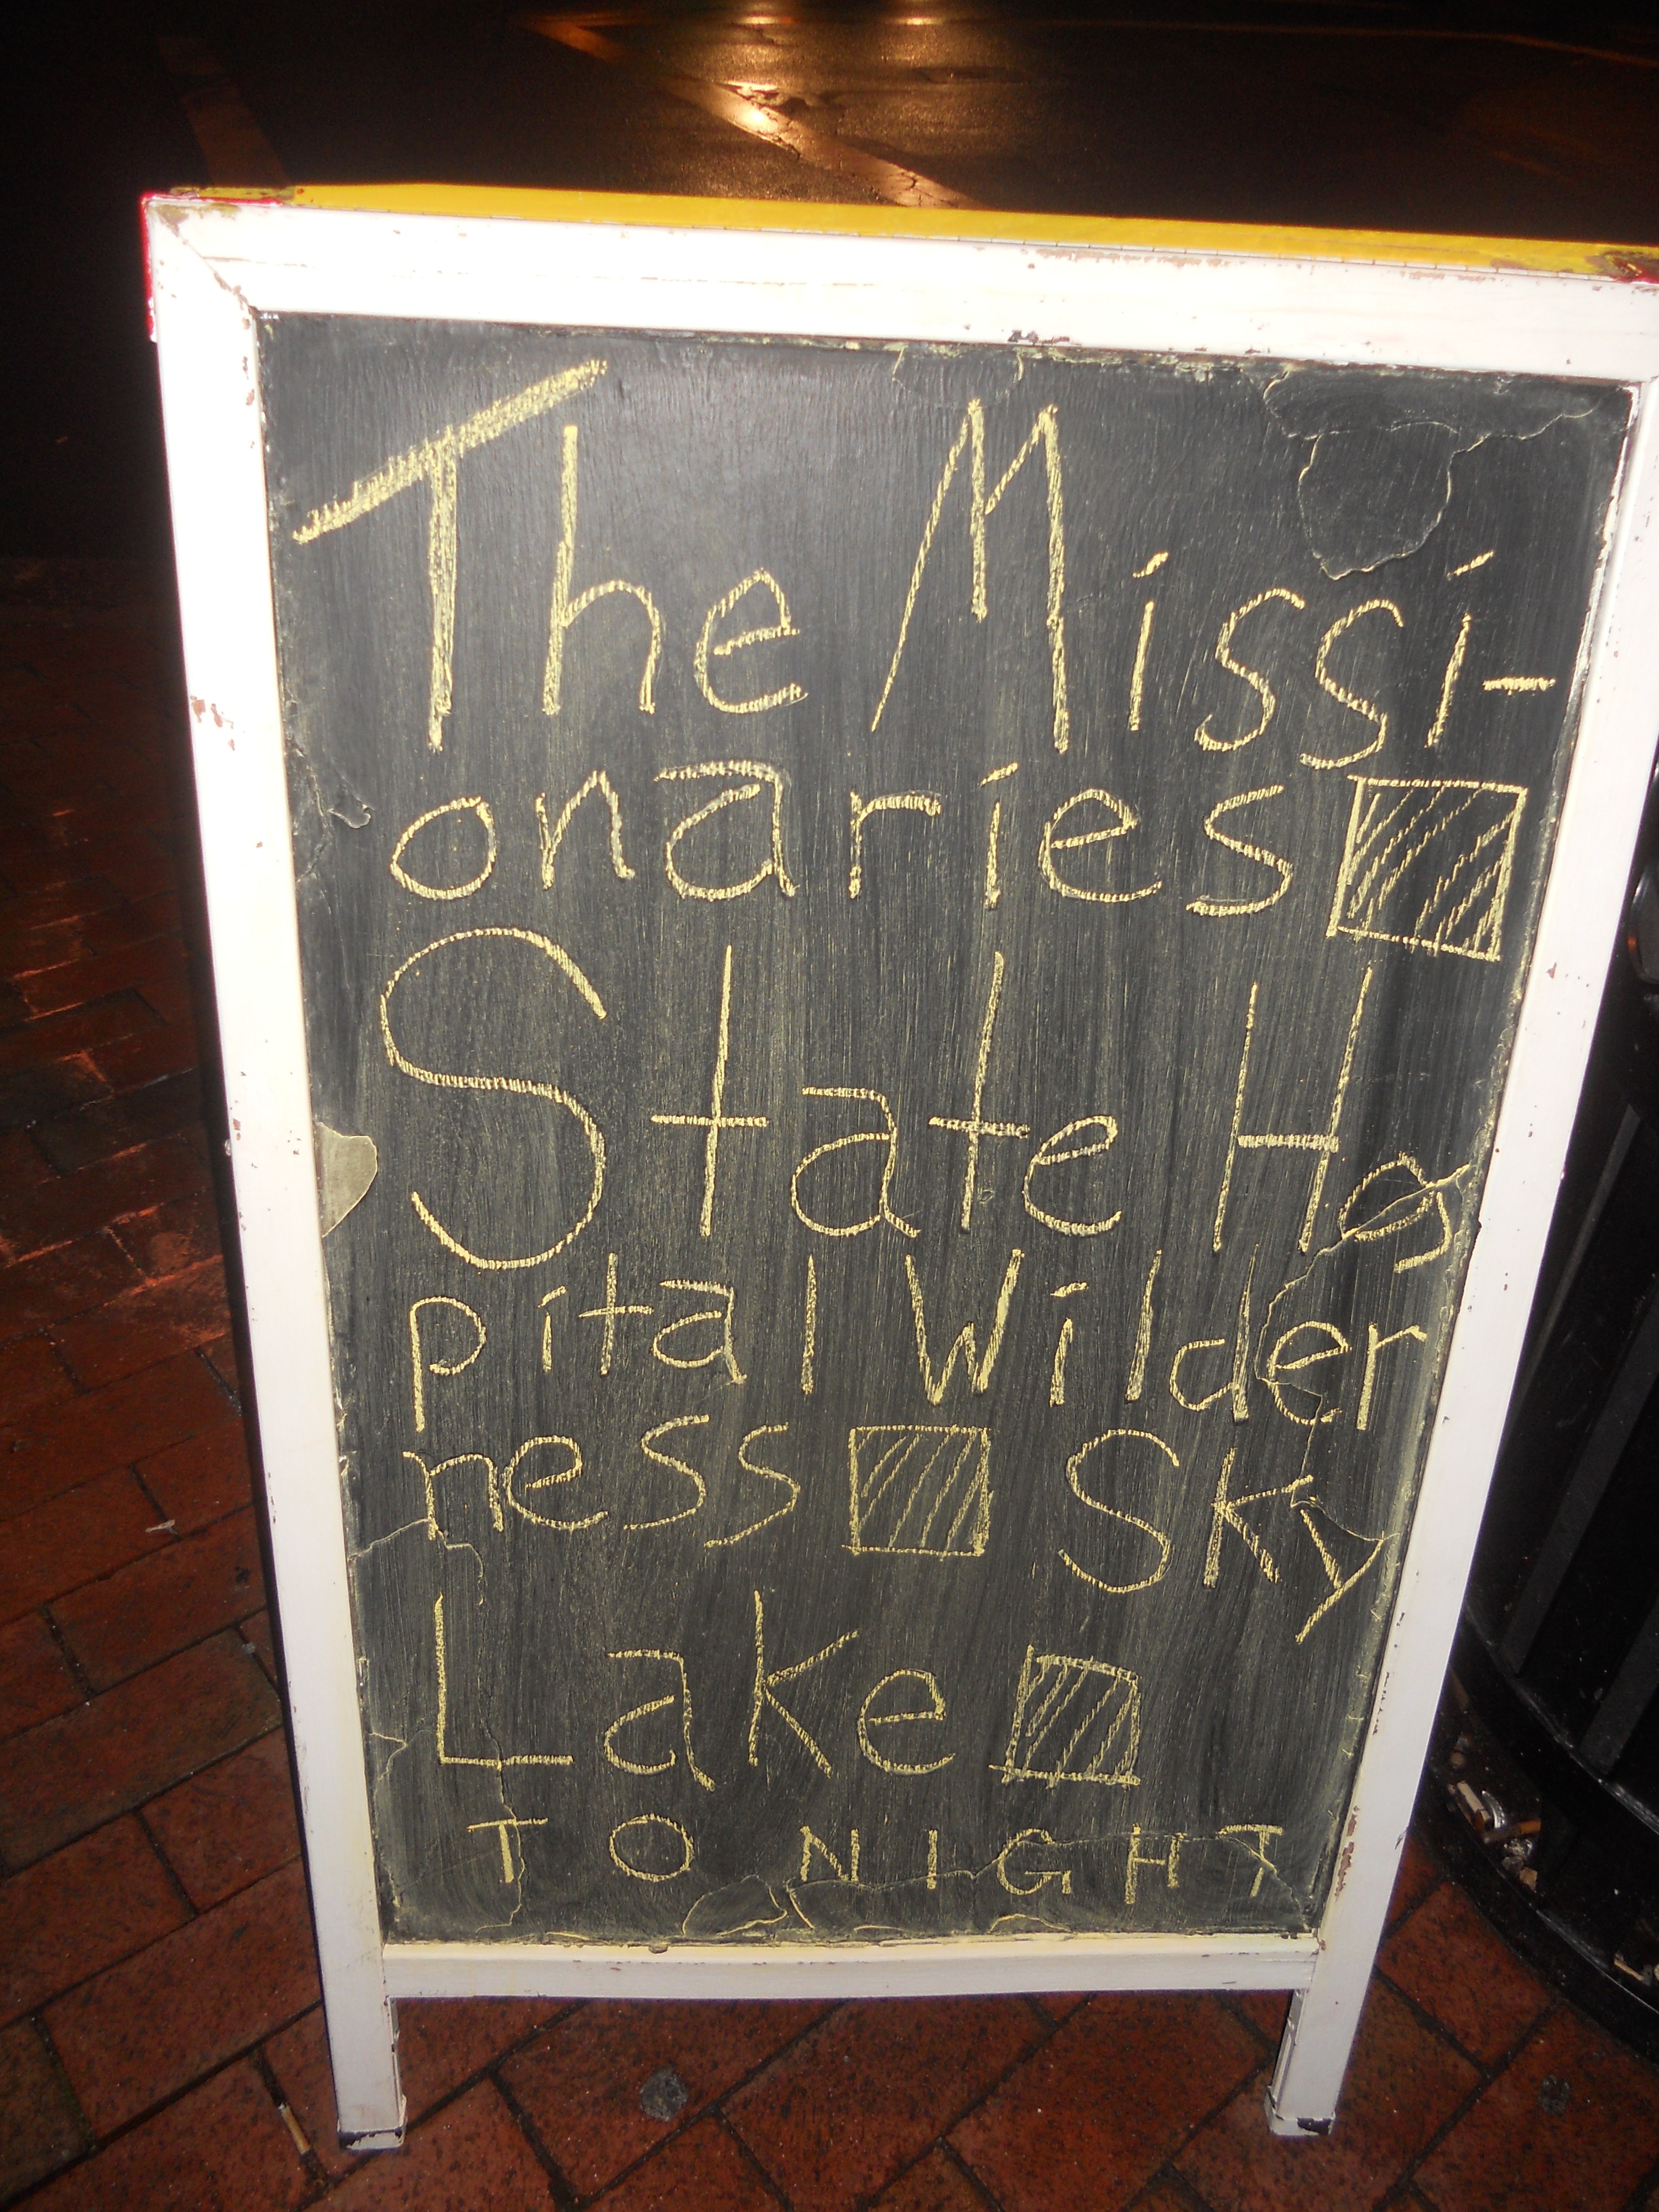 The Missi-
onaries
State Hos
pital Wilder
ness Sky
Lake
TONIGHT